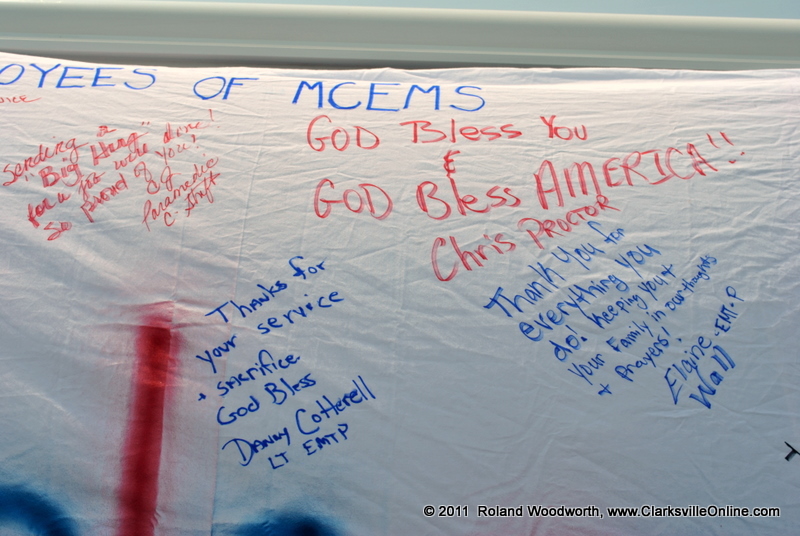 OYEES OF MCEMS
Sending a
"Big Hug"
for a job well done!
So proud of you!
JJ
Paramedic
C Shift
GOD Bless You
&
GOD Bless AMERICA!!
Chris PROCTOR
Thanks for
your service
+ sacrifice.
God Bless
Danny Cotterell
LT EMTP
Thank you for
everything you
do! Keeping you +
your Family in our thoughts
+ Prayers!
Elaine - EMT-P
Wall
© 2011 Roland Woodworth, www.ClarksvilleOnline.com